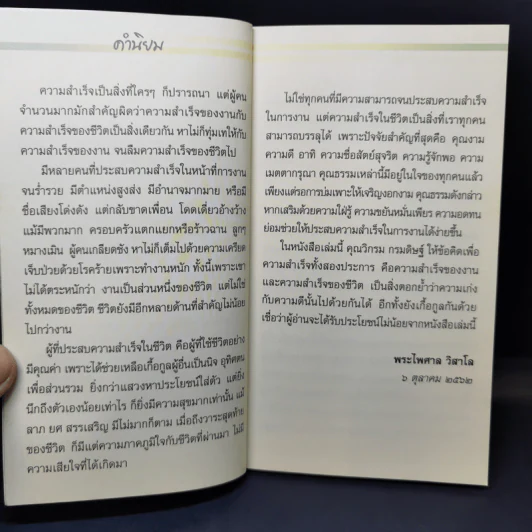 คำนิยม
ความสำเร็จเป็นสิ่งที่ใครๆ ก็ปรารถนา แต่ผู้คน
จำนวนมากมักสำคัญผิดว่าความสำเร็จของงานกับ
ความสำเร็จของชีวิตเป็นสิ่งเดียวกัน หาไม่ก็ทุ่มเทให้กับ
ความสำเร็จของงาน จนลืมความสำเร็จของชีวิตไป
มีหลายคนที่ประสบความสำเร็จในหน้าที่การงาน
จนร่ำรวย มีตำแหน่งสูงส่ง มีอำนาจมากมาย หรือมี
ชื่อเสียงโด่งดัง แต่กลับขาดเพื่อน โดดเดี่ยวอ้างว้าง
แม้มีพวกมาก ครอบครัวแตกแยกหรือร้าวฉาน ลูกๆ
หมางเมิน ผู้คนเกลียดชัง หาไม่ก็เต็มไปด้วยความเครียด
เจ็บป่วยด้วยโรคร้ายเพราะทำงานหนัก ทั้งนี้เพราะเขา
ไม่ได้ตระหนักว่า งานเป็นส่วนหนึ่งของชีวิต แต่ไม่ใช่
ทั้งหมดของชีวิต ชีวิตยังมีอีกหลายด้านที่สำคัญไม่น้อย
ไปกว่างาน
ผู้ที่ประสบความสำเร็จในชีวิต คือผู้ที่ใช้ชีวิตอย่าง
มีคุณค่า เพราะได้ช่วยเหลือเกื้อกูลผู้อื่นเป็นนิจ อุทิศตน
เพื่อส่วนรวม ยิ่งกว่าแสวงหาประโยชน์ใส่ตัว แต่ยิ่ง
นึกถึงตัวเองน้อยเท่าไร ก็ยิ่งมีความสุขมากเท่านั้น แม้
ลาภ ยศ สรรเสริญ มีไม่มากก็ตาม เมื่อถึงวาระสุดท้าย
ของชีวิต ก็มีแต่ความภาคภูมิใจกับชีวิตที่ผ่านมา ไม่มี
ความเสียใจที่ได้เกิดมา
ไม่ใช่ทุกคนที่มีความสามารถจนประสบความสำเร็จ
ในการงาน แต่ความสำเร็จในชีวิตเป็นสิ่งที่เราทุกคน
สามารถบรรลุได้ เพราะปัจจัยสำคัญที่สุดคือ คุณงาม
ความดี อาทิ ความซื่อสัตย์สุจริต ความรู้จักพอ ความ
เมตตากรุณา คุณธรรมเหล่านี้มีอยู่ในใจของทุกคนแล้ว
เพียงแต่รอการบ่มเพาะให้เจริญงอกงาม คุณธรรมดังกล่าว
หากเสริมด้วยความใฝ่รู้ ความขยันหมั่นเพียร ความอดทน
ย่อมช่วยให้ประสบความสำเร็จในการงานได้ง่ายขึ้น
ในหนังสือเล่มนี้ คุณวิกรม กรมดิษฐ์ ให้ข้อคิดเพื่อ
ความสำเร็จทั้งสองประการ คือความสำเร็จของงาน
และความสำเร็จของชีวิต เป็นสิ่งตอกย้ำว่าความเก่ง
กับความดีนั้นไปด้วยกันได้ อีกทั้งยังเกื้อกูลกันด้วย
เชื่อว่าผู้อ่านจะได้รับประโยชน์ไม่น้อยจากหนังสือเล่มนี้
พระไพศาล วิสาโล
๖ ตุลาคม ๒๕๖๒